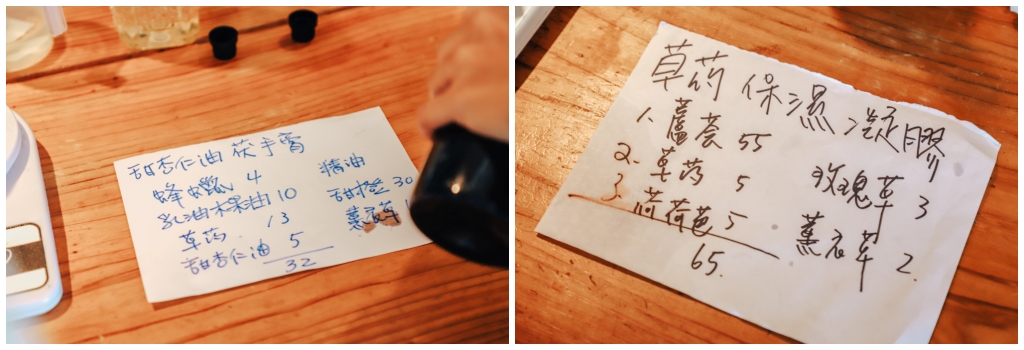 甜杏仁油 茯手膏
蜂蠟 4
乳油木果油 10
草药 13
甜杏仁油 5
32
精油
甜橙 30
薰衣草
草药 保濕凝膠
1. 蘆薈 55
2. 草药 5
3. 荷荷芭 5
65.
玫瑰草 3
薰衣草 2.